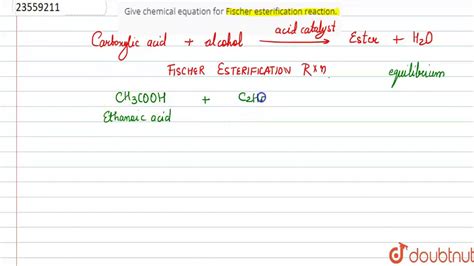 23559211
Give chemical equation for Fischer esterification reaction.
acid catalyst
Carboxylic acid + alcohol → Ester + H2O
FISCHER ESTERIFICATION Rxn.
equilibrium
CH3COOH + C2H
Ethanoic acid
doubtnut